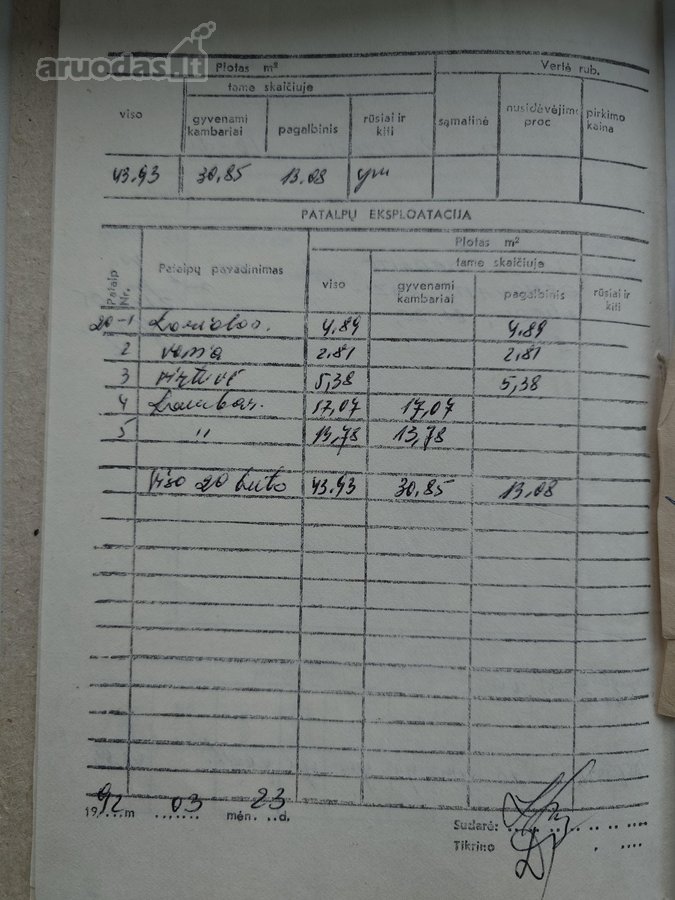 aruodas.lt
Plotas m² Vertė rub.
viso tame skaičiuje sąmatinė nusidėvėjimo proc. pirkimo kaina
gyvenami kambariai pagalbinis rūsiai ir kiti
43.93 30,85 13.08
PATALPŲ EKSPLOATACIJA
Patalp Nr. Patalpų pavadinimas Plotas m²
viso tame skaičiuje
gyvenami kambariai pagalbinis rūsiai ir kiti
20-1 4,89 4,89
2 vonia 2,81 2,81
3 virtuvė 5,38 5,38
4 kambar. 17,07 17,07
5 " 13,78 13,78
viso 20 buto 43.93 30,85 13,08
1992 m 03 mėn. 23 d.
Sudarė:
Tikrino